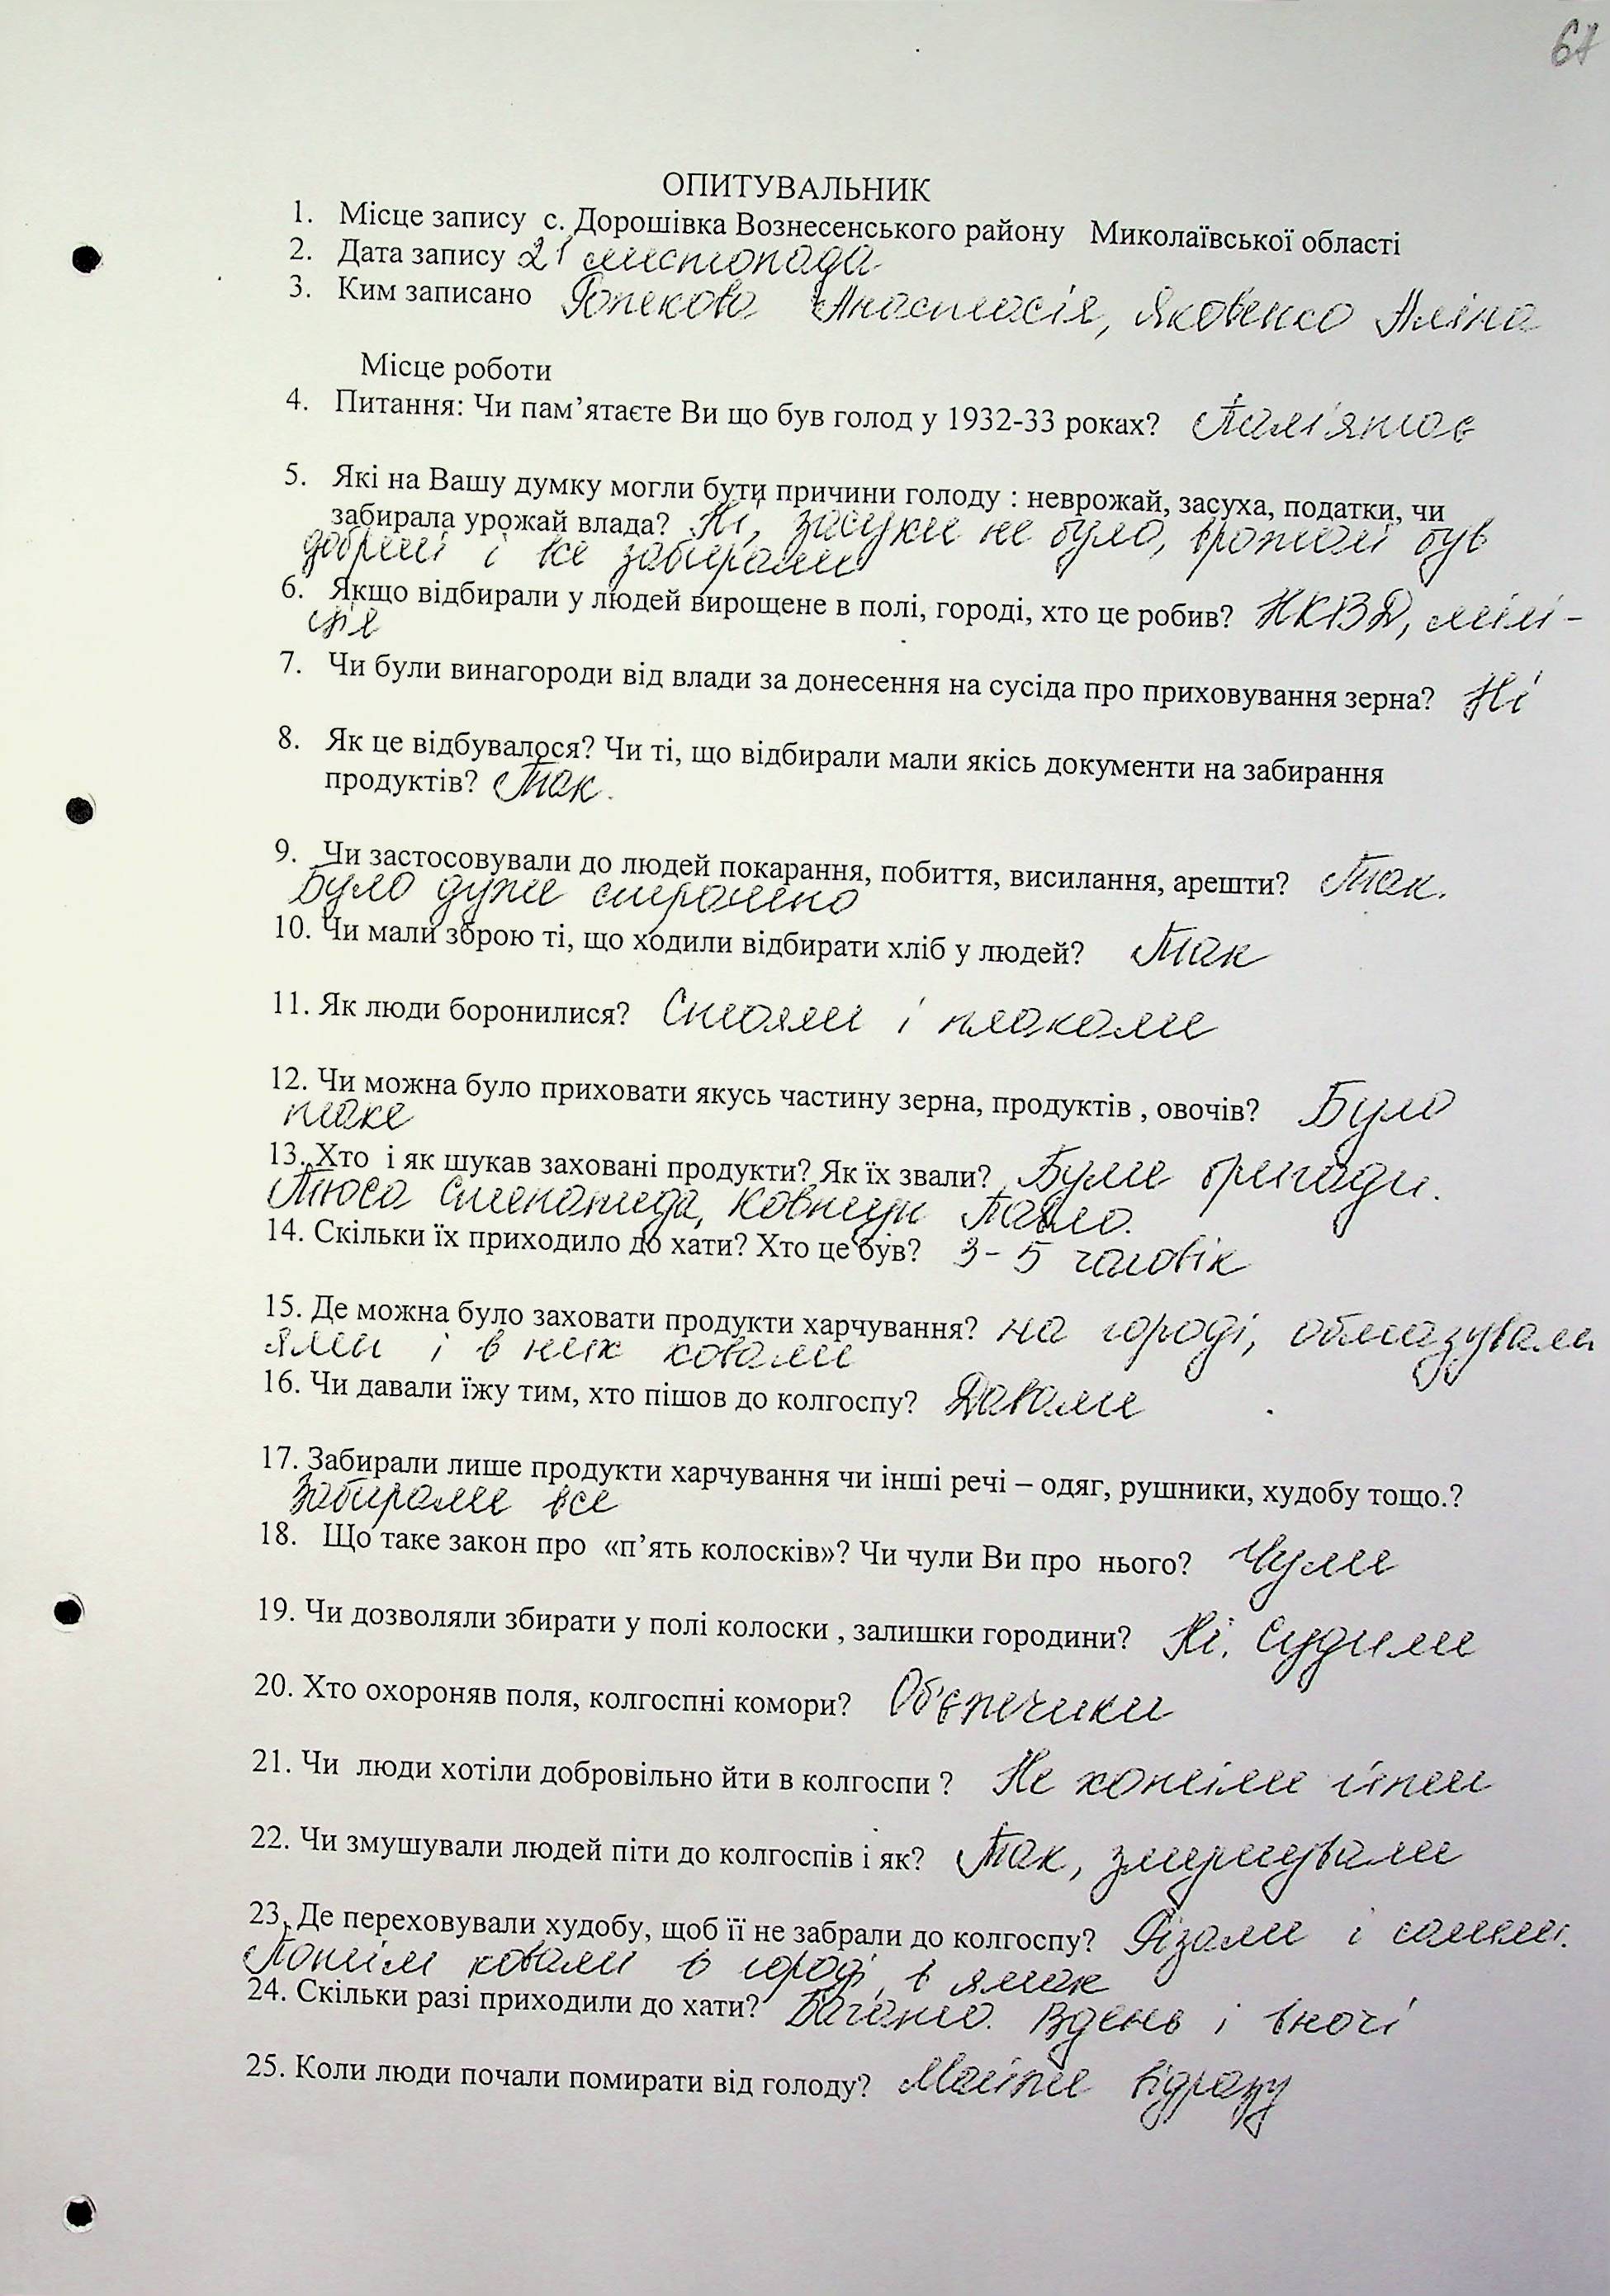 67
ОПИТУВАЛЬНИК
1. Місце запису с. Дорошівка Вознесенського району Миколаївської області
2. Дата запису 21 листопада
3. Ким записано Анастасія, Яковенко Аліна
Місце роботи
4. Питання: Чи пам’ятаєте Ви що був голод у 1932-33 роках? Пам'ятає
5. Які на Вашу думку могли бути причини голоду : неврожай, засуха, податки, чи
забирала урожай влада? Ні, засухи не було, врожай був
добрий і все забирали
6. Якщо відбирали у людей вирощене в полі, городі, хто це робив? НКВД, мілі-
ція
7. Чи були винагороди від влади за донесення на сусіда про приховування зерна? Ні
8. Як це відбувалося? Чи ті, що відбирали мали якісь документи на забирання
продуктів? Так.
9. Чи застосовували до людей покарання, побиття, висилання, арешти? Так.
Було дуже страшно
10. Чи мали зброю ті, що ходили відбирати хліб у людей? Так
11. Як люди боронилися? Стояли і плакали
12. Чи можна було приховати якусь частину зерна, продуктів , овочів? Було
таке
13. Хто і як шукав заховані продукти? Як їх звали? Були бригади.
Павло.
14. Скільки їх приходило до хати? Хто це був? 3-5 чоловік
15. Де можна було заховати продукти харчування? на городі, обмазували
ями і в них ховали
16. Чи давали їжу тим, хто пішов до колгоспу? Давали
17. Забирали лише продукти харчування чи інші речі – одяг, рушники, худобу тощо.?
Забирали все
18. Що таке закон про «п’ять колосків»? Чи чули Ви про нього? Чули
19. Чи дозволяли збирати у полі колоски , залишки городини? Ні. Судили
20. Хто охороняв поля, колгоспні комори? Об'єпчики
21. Чи люди хотіли добровільно йти в колгоспи ? Не хотіли йти
22. Чи змушували людей піти до колгоспів і як? Так, змушували
23. Де переховували худобу, щоб її не забрали до колгоспу? Різали і солили.
Потім ховали в городі, в ямах
24. Скільки разі приходили до хати? Багато. Вдень і вночі
25. Коли люди почали помирати від голоду? Майже відразу